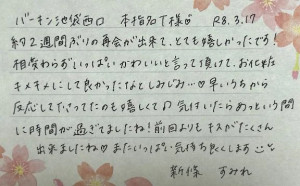 バーキン池袋西口 本指名T様 R8.3.17
約2週間ぶりの再会が出来て、とても嬉しかったです!
相変わらずいっぱいかわいいと言って頂けて、お仕事
キメキメにして良かったなとしみじみ…♡早いうちから
反応してだってたのも嬉しくて♪気付いたらあっという間
に時間が過ぎてましたね!前回よりもキスがたくさん
出来ましたね♡またいっぱい気持ち良くします
新條 すみれ